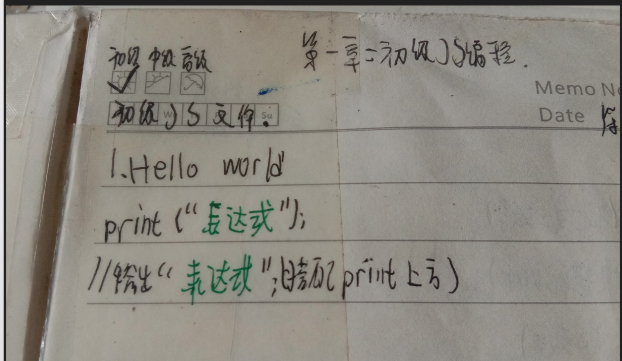 第一章:初级JS编程.
初级 中级 高级
Memo No
Date 第
初级JS文件:
1.Hello world
print ("表达式");
//输出"表达式";(print上方)